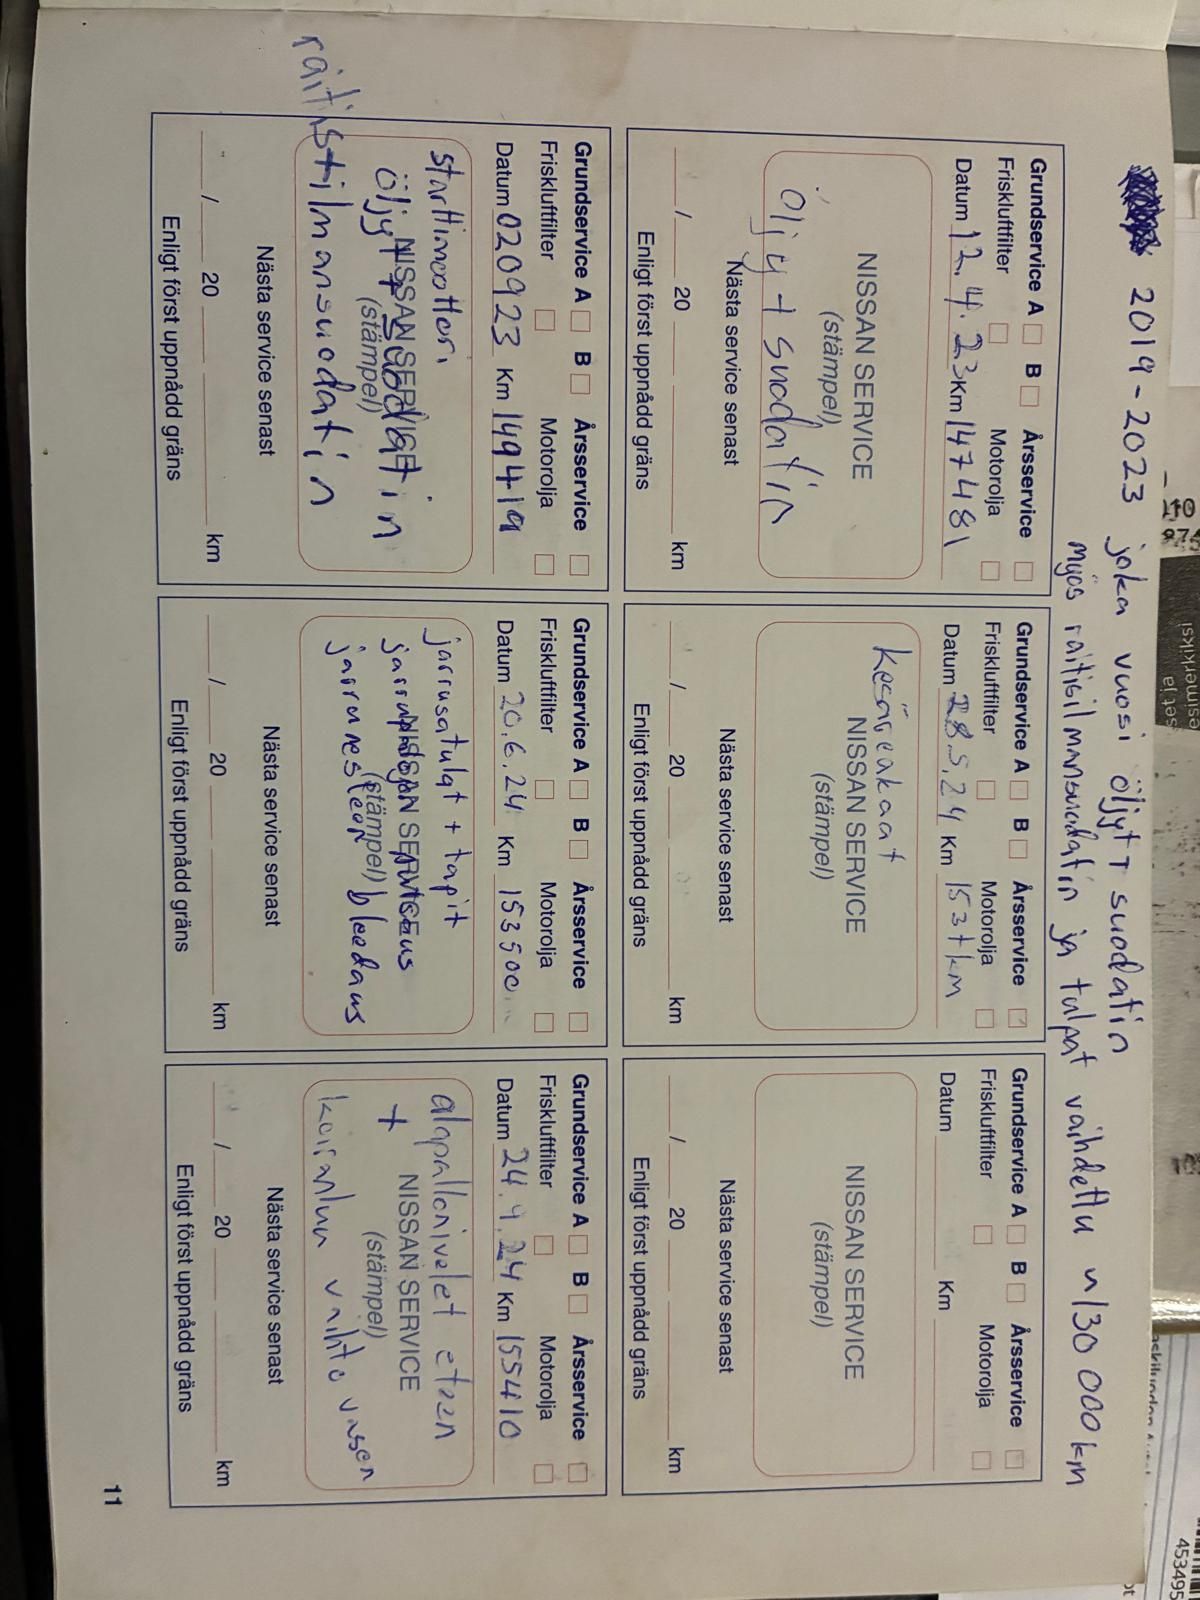 2019-2023 joka vuosi öljyt + suodatin
myös raitisilmansuodatin ja tulpat vaihdettu n/30 000 km
Grundservice A B Årsservice
Friskluftfilter Motorolja
Datum 12.4.23 Km 147481
NISSAN SERVICE
(stämpel)
Öljy + suodatin
Nästa service senast
/ 20 km
Enligt först uppnådd gräns
Grundservice A B Årsservice
Friskluftfilter Motorolja
Datum 28.5.24 Km 153 tkm
Kesärenkaat
NISSAN SERVICE
(stämpel)
Nästa service senast
/ 20 km
Enligt först uppnådd gräns
Grundservice A B Årsservice
Friskluftfilter Motorolja
Datum Km
NISSAN SERVICE
(stämpel)
Nästa service senast
/ 20 km
Enligt först uppnådd gräns
Grundservice A B Årsservice
Friskluftfilter Motorolja
Datum 020923 Km 149419
starttimoottori
öljyt + suodatin
NISSAN SERVICE
(stämpel)
raitistilmansuodatin
Nästa service senast
/ 20 km
Enligt först uppnådd gräns
Grundservice A B Årsservice
Friskluftfilter Motorolja
Datum 20.6.24 Km 153500
jarrusatulat + tapit
NISSAN SERVICE
(stämpel)
jarrunesteen bleedaus
Nästa service senast
/ 20 km
Enligt först uppnådd gräns
Grundservice A B Årsservice
Friskluftfilter Motorolja
Datum 24.9.24 Km 155410
alapallonivelet eteen
+
NISSAN SERVICE
(stämpel)
koiranluu vaihto vasen
Nästa service senast
/ 20 km
Enligt först uppnådd gräns
11
453495